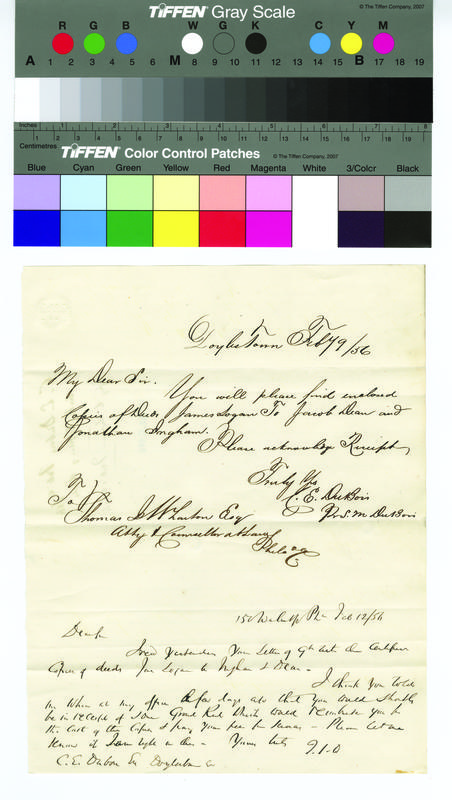 TIFFEN® Gray Scale
© The Tiffen Company, 2007
R G B W G K C Y M
A 1 2 3 4 5 6 M 8 9 10 11 12 13 14 15 B 17 18 19
Inches 1 2 3 4 5 6 7 8
Centimetres 1 2 3 4 5 6 7 8 9 10 11 12 13 14 15 16 17 18 19
TIFFEN® Color Control Patches
© The Tiffen Company, 2007
Blue Cyan Green Yellow Red Magenta White 3/Color Black
Doylestown Feby 9/56
My Dear Sir.
You will please find enclosed
Copies of Deeds James Logan To Jacob Dean and
Jonathan Ingham.
Please acknowledge Receipt
Truly Yrs
C. E. DuBois
Pr S. M DuBois
To
Thomas I Wharton Esq
Atty & Counsellor at Law
Philada
150 Walnut Feb 12/56
Dear Sir
I recd yesterday Your Letter of 9th with
Copies of deeds Jas Logan to Ingham & Dean -
I think You told
me When at my office a few days ago that You would Shortly
be in receipt of Some Ground Rent Which would reimburse You for
the Cost of the Copies & pay Your fees for - Please let me
Know if I am right in this - Yours truly
C. E. Dubois Esq Doylestown